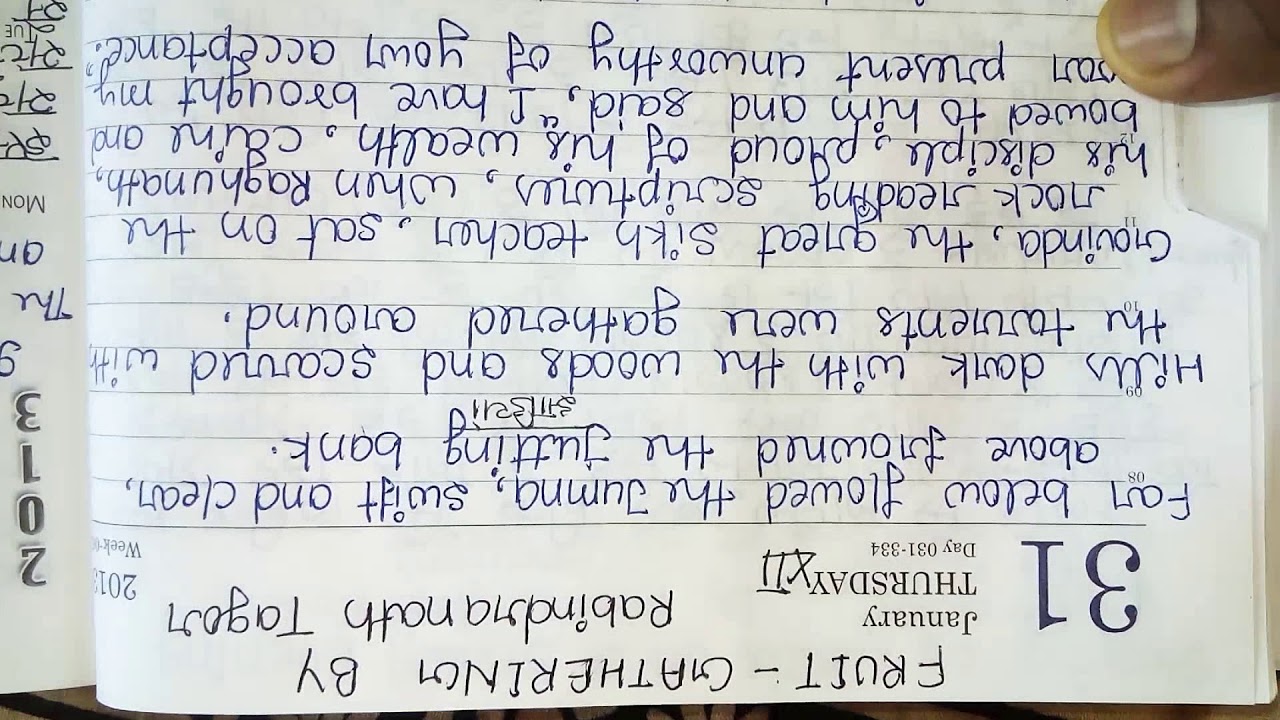 FRUIT - GATHERING BY
Rabindranath Tagor
31
January
THURSDAY XII
Day 031-334
2013
08 Far below flowed the Jumna, swift and clear,
above frowned the Jutting bank.
09 Hills dark with the woods and scarred with
10 the torrents were gathered around.
11 Govinda, the great Sikh teacher, sat on the
rock reading scriptures, when Raghunath,
12 his disciple, proud of his wealth, came and
bowed to him and said, "I have brought my
present unworthy of your acceptance."
2013
The
an
MON
TUE